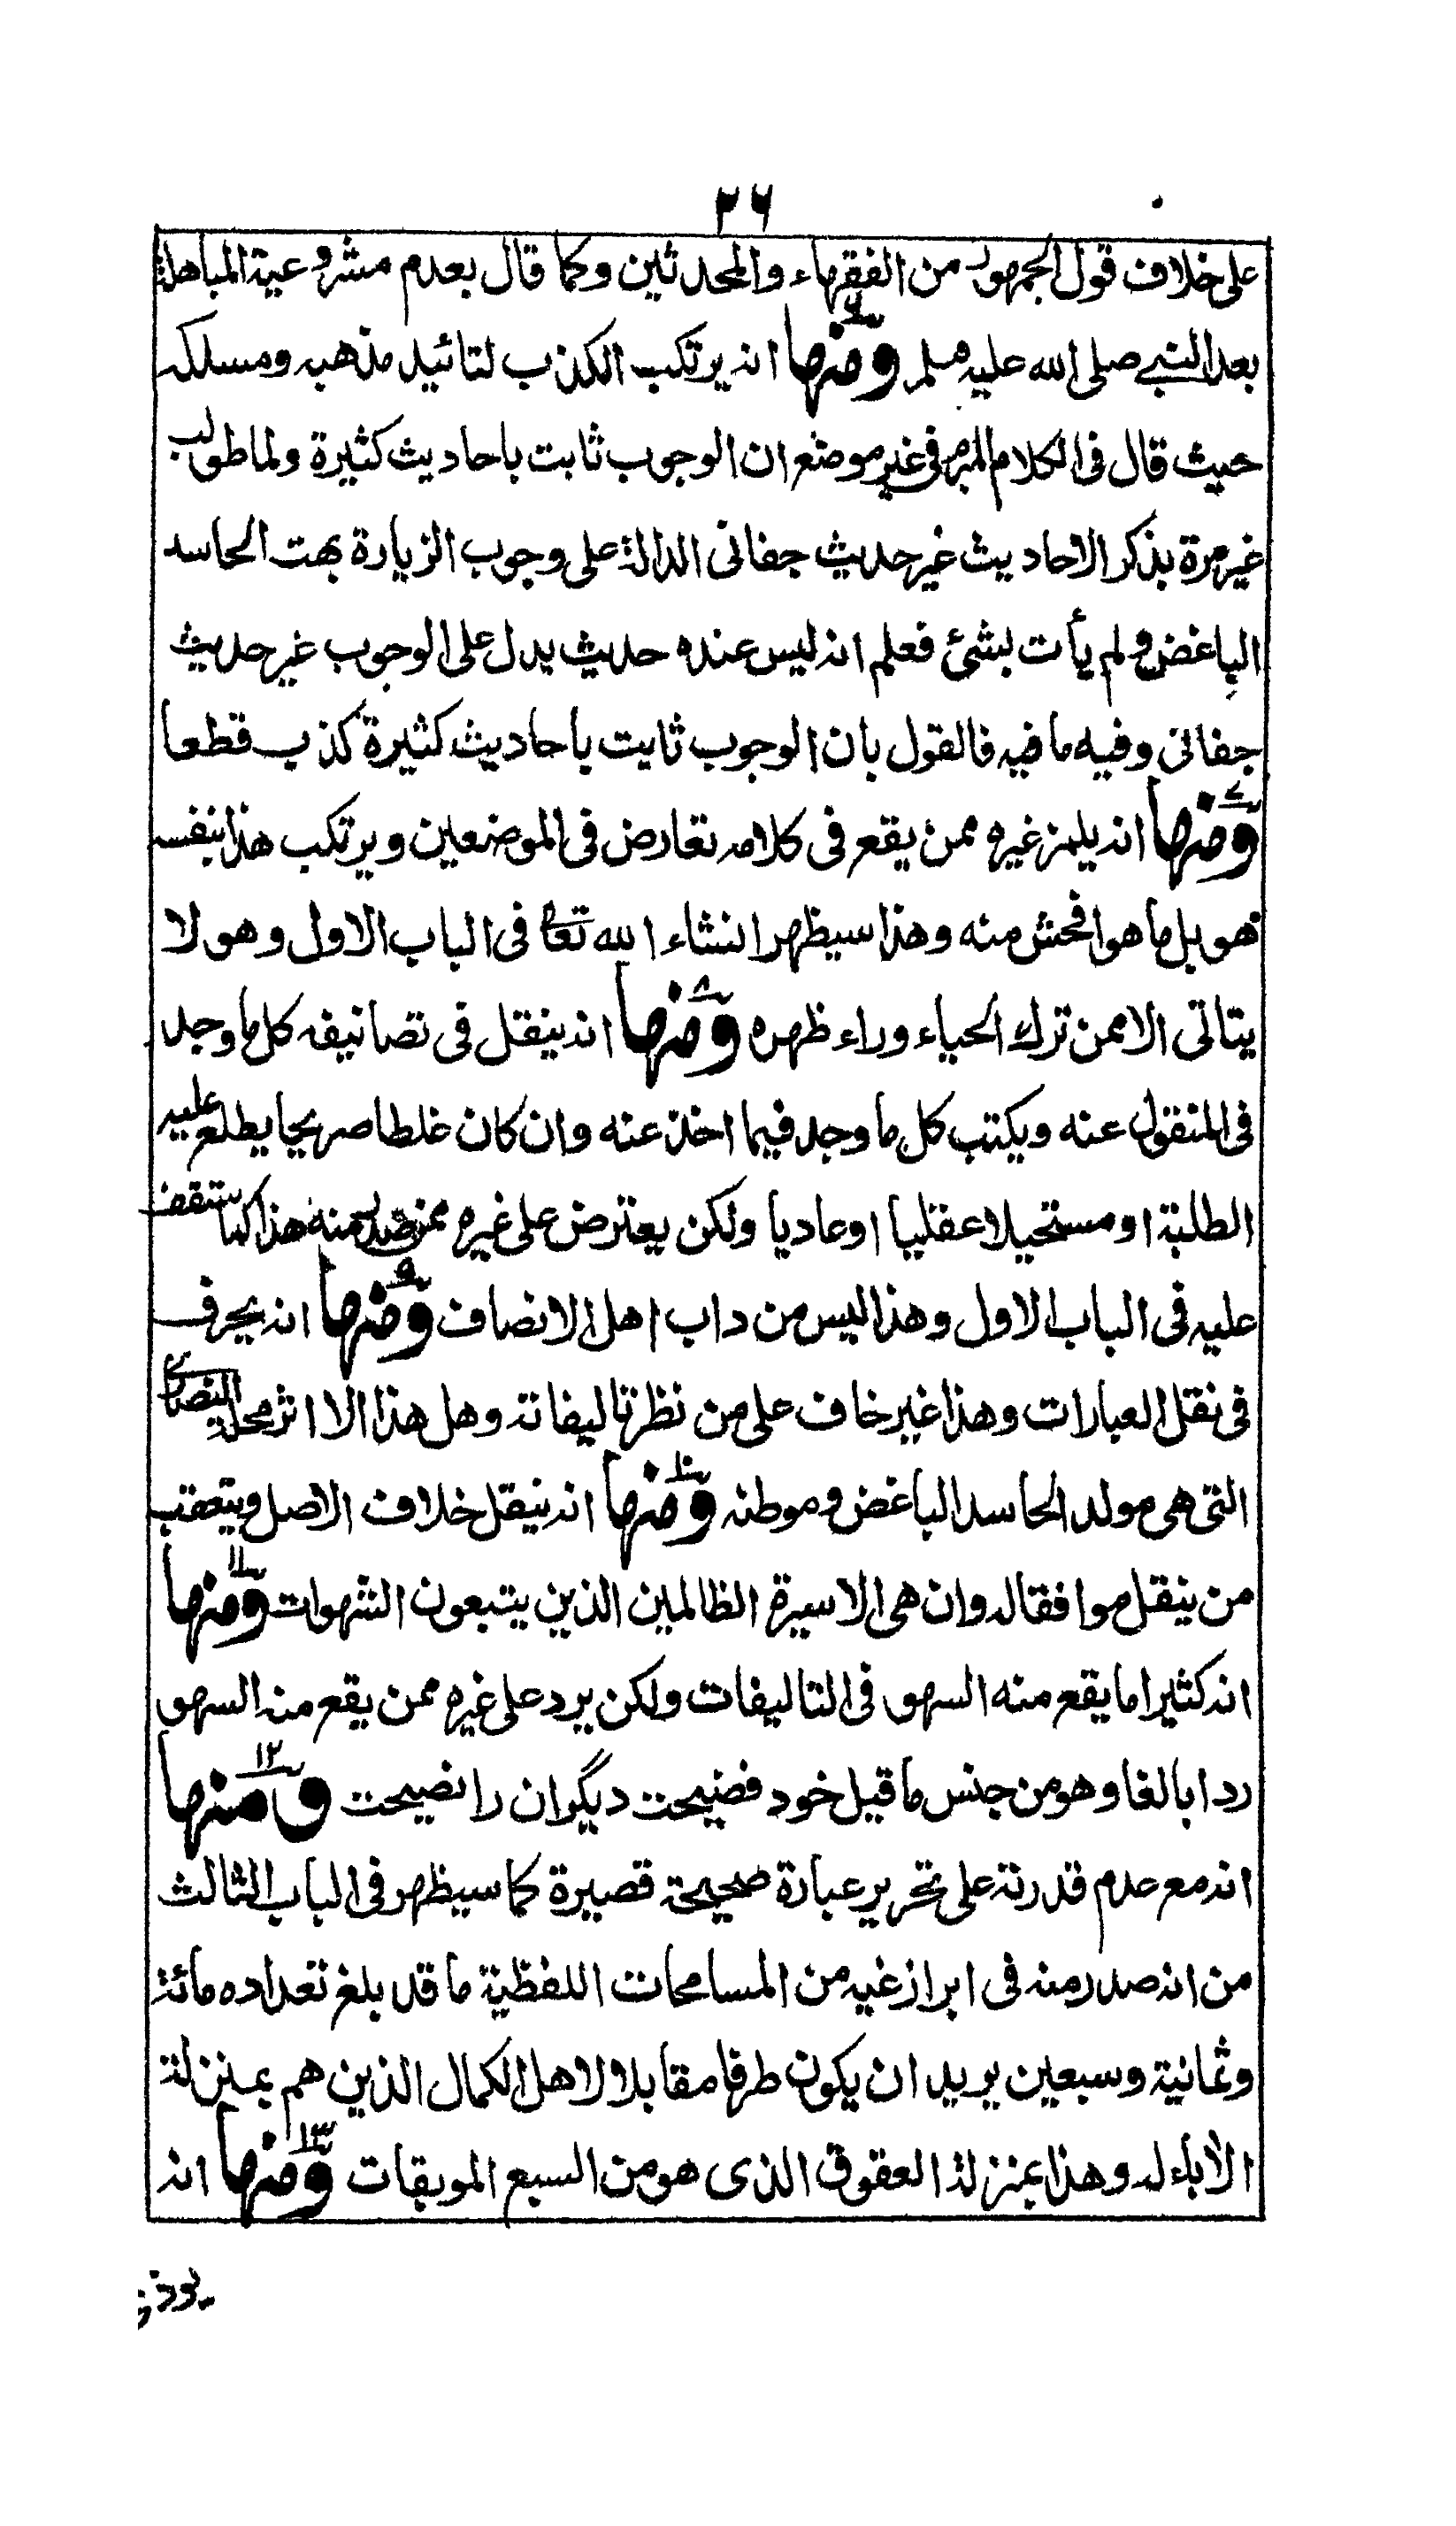 ٢٦
على خلاف قول الجمهور من الفقهاء والمحدثين وكما قال بعدم مشروعية المباهلة
بعد النبي صلى الله عليه وسلم ومنها ٦ انه يرتكب الكذب لتائيد مذهبه ومسلكه
حيث قال فى الكلام المبرم فى غير موضع ان الوجوب ثابت باحاديث كثيرة ولما طولب
غير مرة بذكر الاحاديث غير حديث جفانى الدالة على وجوب الزيارة بهت الحاسد
الباغض ولم يأت بشئ فعلم انه ليس عنده حديث يدل على الوجوب غير حديث
جفانى وفيه ما فيه فالقول بان الوجوب ثابت باحاديث كثيرة كذب قطعا
ومنها ٧ انه يلمز غيره ممن يقع فى كلامه تعارض فى الموضعين ويرتكب هذا بنفسه
هو بل ما هو افحش منه وهذا سيظهر انشاء الله تعا فى الباب الاول وهو لا
يتاتى الا ممن ترك الحياء وراء ظهره ومنها ٨ انه ينقل فى تصانيفه كل ما وجد
فى المنقول عنه ويكتب كل ما وجد فيما اخذ عنه وان كان غلطا صريحا يطلع عليه
الطلبة او مستحيلا عقليا او عاديا ولكن يعترض على غيره ممن صدر منه هذا كما ستقف
عليه فى الباب الاول وهذا ليس من داب اهل الانصاف ومنها ٩ انه يحرف
فى نقل العبارات وهذا غير خاف على من نظر تاليفاته وهل هذا الا اثر محلة النصارى
التى هى مولد الحاسد الباغض وموطنه ومنها ١٠ انه ينقل خلاف الاصل ويتعقب
من ينقل موافقا له وان هى الا سيرة الظالمين الذين يتبعون الشهوات ومنها ١١
انه كثيرا ما يقع منه السهو فى التاليفات ولكن يرد على غيره ممن يقع منه السهو
ردا بالغا وهو من جنس ما قيل خود فضيحت ديگران را نصيحت ومنها ١٢
انه مع عدم قدرته على تحرير عبارة صحيحة قصيرة كما سيظهر فى الباب الثالث
من انه صدر منه فى ابراز غيه من المسامحات اللفظية ما قد بلغ تعداده مائة
وثمانية وسبعين يريد ان يكون طرفا مقابلا لاهل الكمال الذين هم بمنزلة
الأباء له وهذا بمنزلة العقوق الذى هو من السبع الموبقات ومنها ١٣ انه